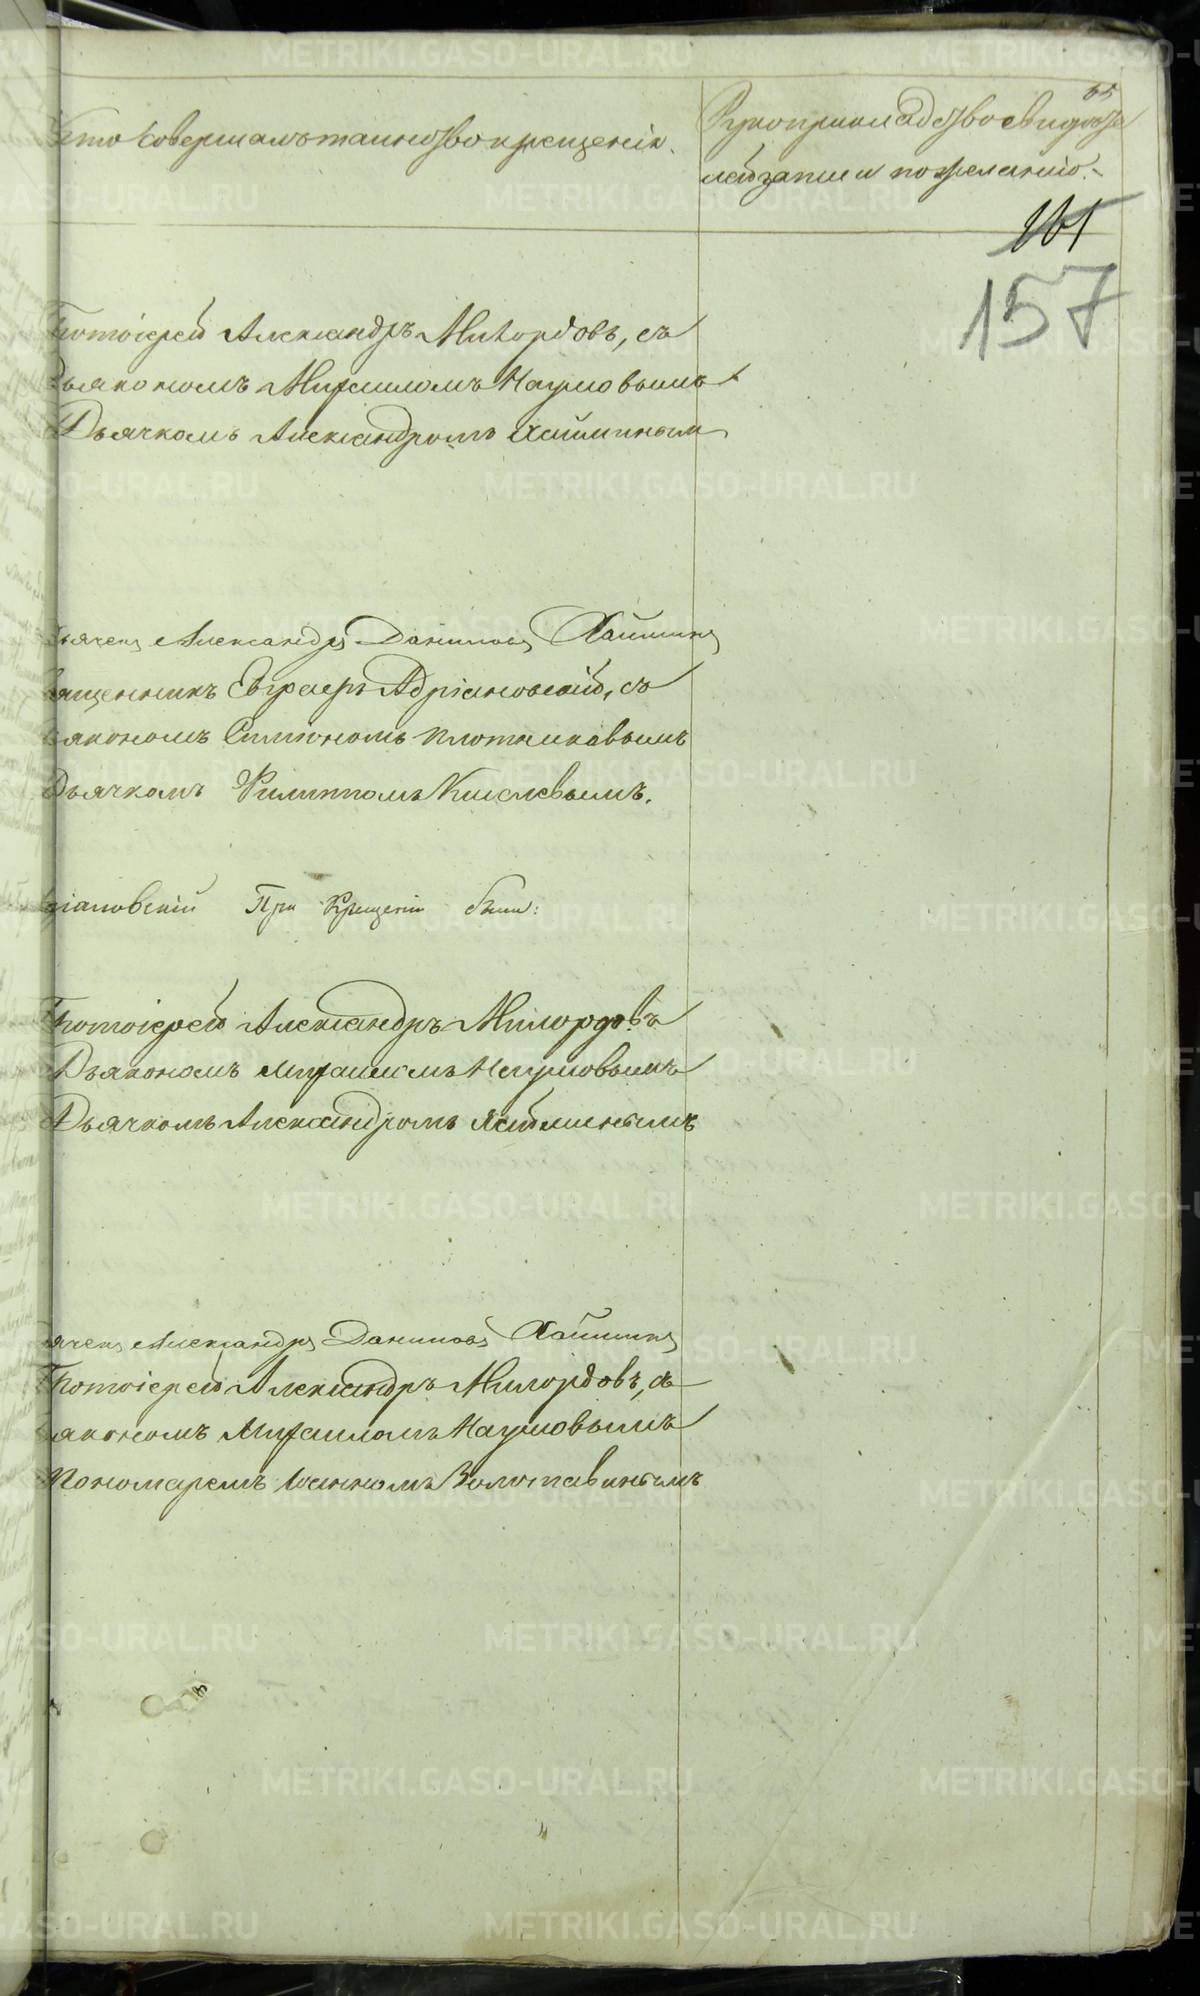 Кто совершалъ таинство крещенія.
Рукоприкладство свидѣте
лей записи по желанію.
65
161
157
Протоіерей Александръ Милордовъ, съ
Дьякономъ Михаиломъ Наумовымъ
Дьячкомъ Александромъ Хайминым
Дьячекъ Александръ Даниловъ Хайминъ
Священникъ Евграфъ Адріановскій, съ
Дьякономъ Симеономъ Плотниковымъ
Дьячкомъ Филиппомъ Киселевымъ.
ріановскій При Крещеніи были:
Протоіерей Александръ Милордовъ
Дьякономъ Михаиломъ Наумовымъ
Дьячкомъ Александромъ Хайминымъ
Дьячекъ Александръ Даниловъ Хайминъ
Протоіерей Александръ Милордовъ, съ
Дьякономъ Михаиломъ Наумовымъ
Пономаремъ Іоанномъ Золотавинымъ
METRIKI.GASO-URAL.RU